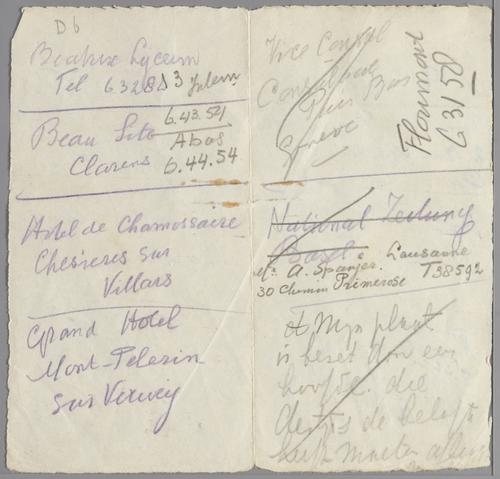 D6
Beatrix Lyceum
Tel 63281 3
Beau Site 6.43.54
Abos
Clarens 6.44.54
Hotel de Chamossaire
Chesieres sur
Villars
Grand Hotel
Mont-Pelerin
sur Vevey
Vice Consul
Consulaat
Pais Bas
Geneve
63158
National Zeitung
Basel
A. Spanjer. Lausanne
30 Chemin Primerose T38592
Mijn plaat
is bezet door een
die
de
moeten